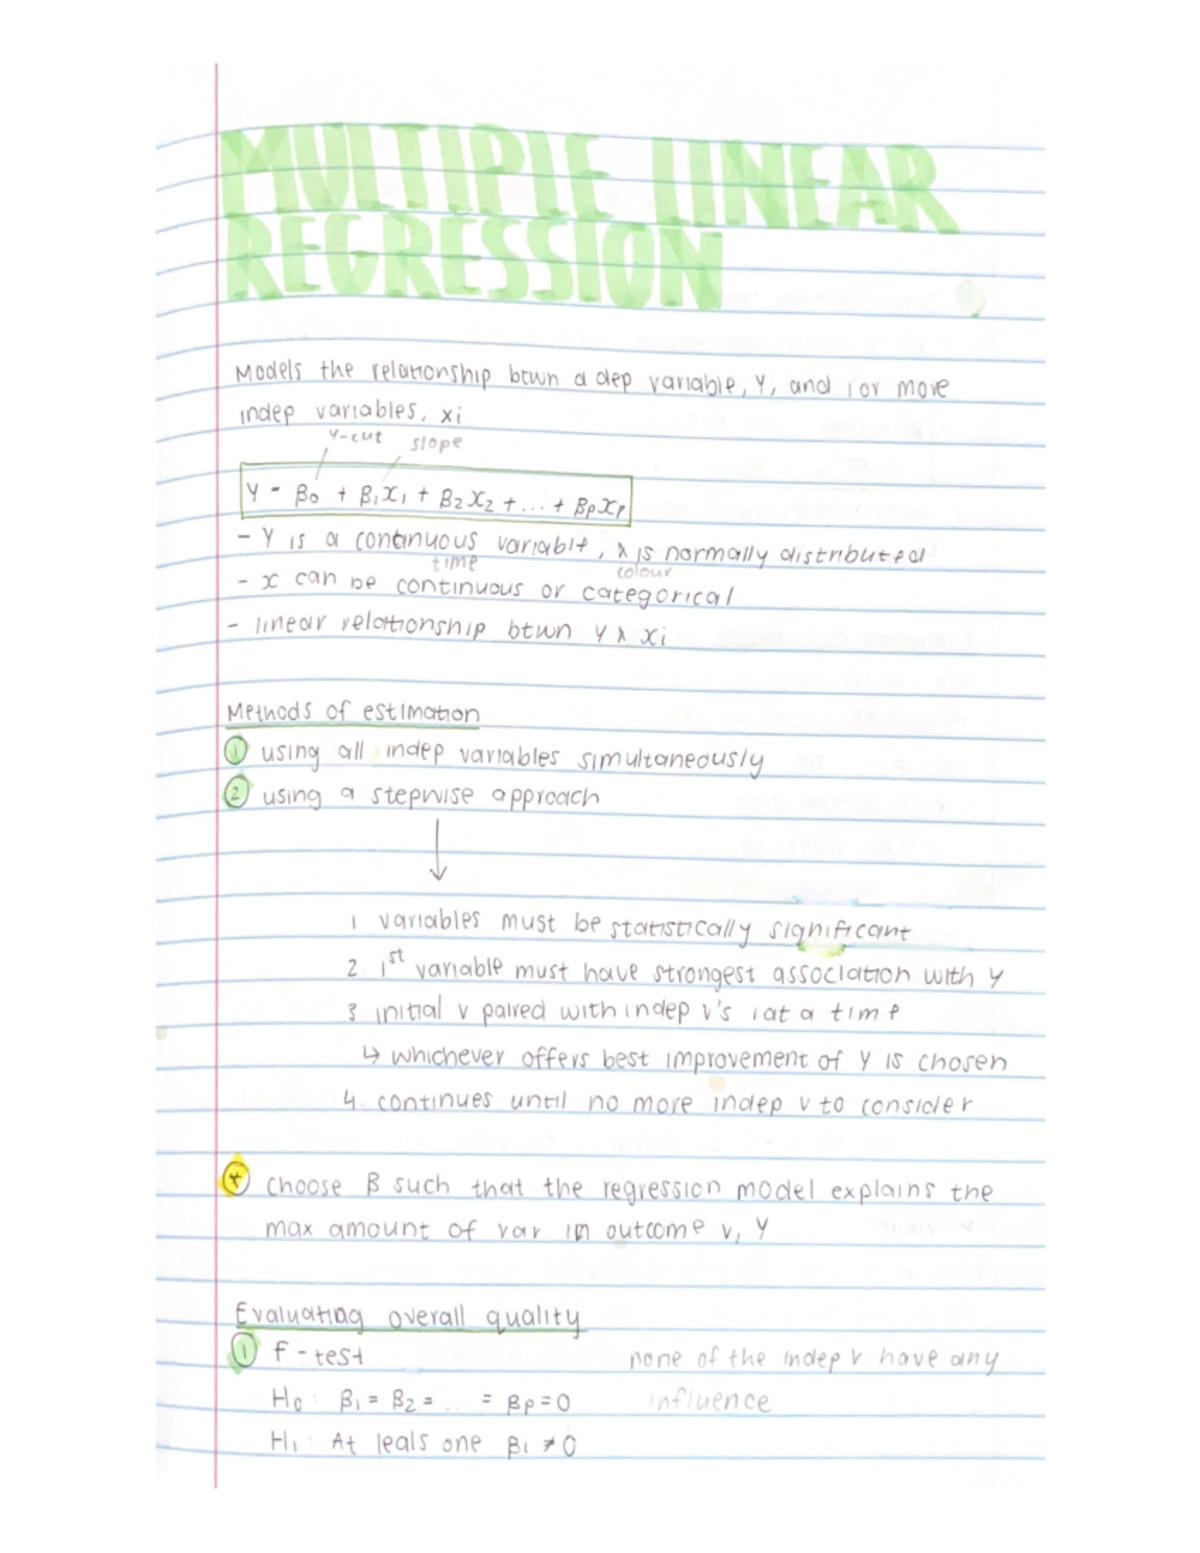 MULTIPLE LINEAR
REGRESSION
Models the relationship btwn a dep variable, Y, and 1 or more
indep variables, xi
Y-cut slope
Y = β0 + β1x1 + β2x2 + ... + βpxp
- Y is a continuous variable, & is normally distributed
time colour
- x can be continuous or categorical
- linear relationship btwn Y & xi
Methods of estimation
① using all indep variables simultaneously
② using a stepwise approach
↓
1 variables must be statistically significant
2. 1st variable must have strongest association with Y
3. initial v paired with indep v's 1 at a time
↳ whichever offers best improvement of Y is chosen
4. continues until no more indep v to consider
* choose β such that the regression model explains the
max amount of var in outcome v, Y
Evaluating overall quality
① F-test none of the indep v have any
H0: β1 = β2 = ... = βp = 0 influence
H1: At leals one βi ≠ 0